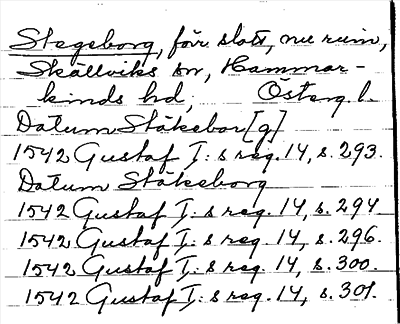 Stegeborg, förr slott, nu ruin,
Skällviks sn, Hammar-
kinds hd, Österg. l.
Datum Stäkebor[g]
1542 Gustaf I:s reg. 14, s. 293.
Datum Stäkeborg
1542 Gustaf I:s reg. 14, s. 294.
1542 Gustaf I:s reg. 14, s. 296.
1542 Gustaf I:s reg. 14, s. 300.
1542 Gustaf I:s reg. 14, s. 301.